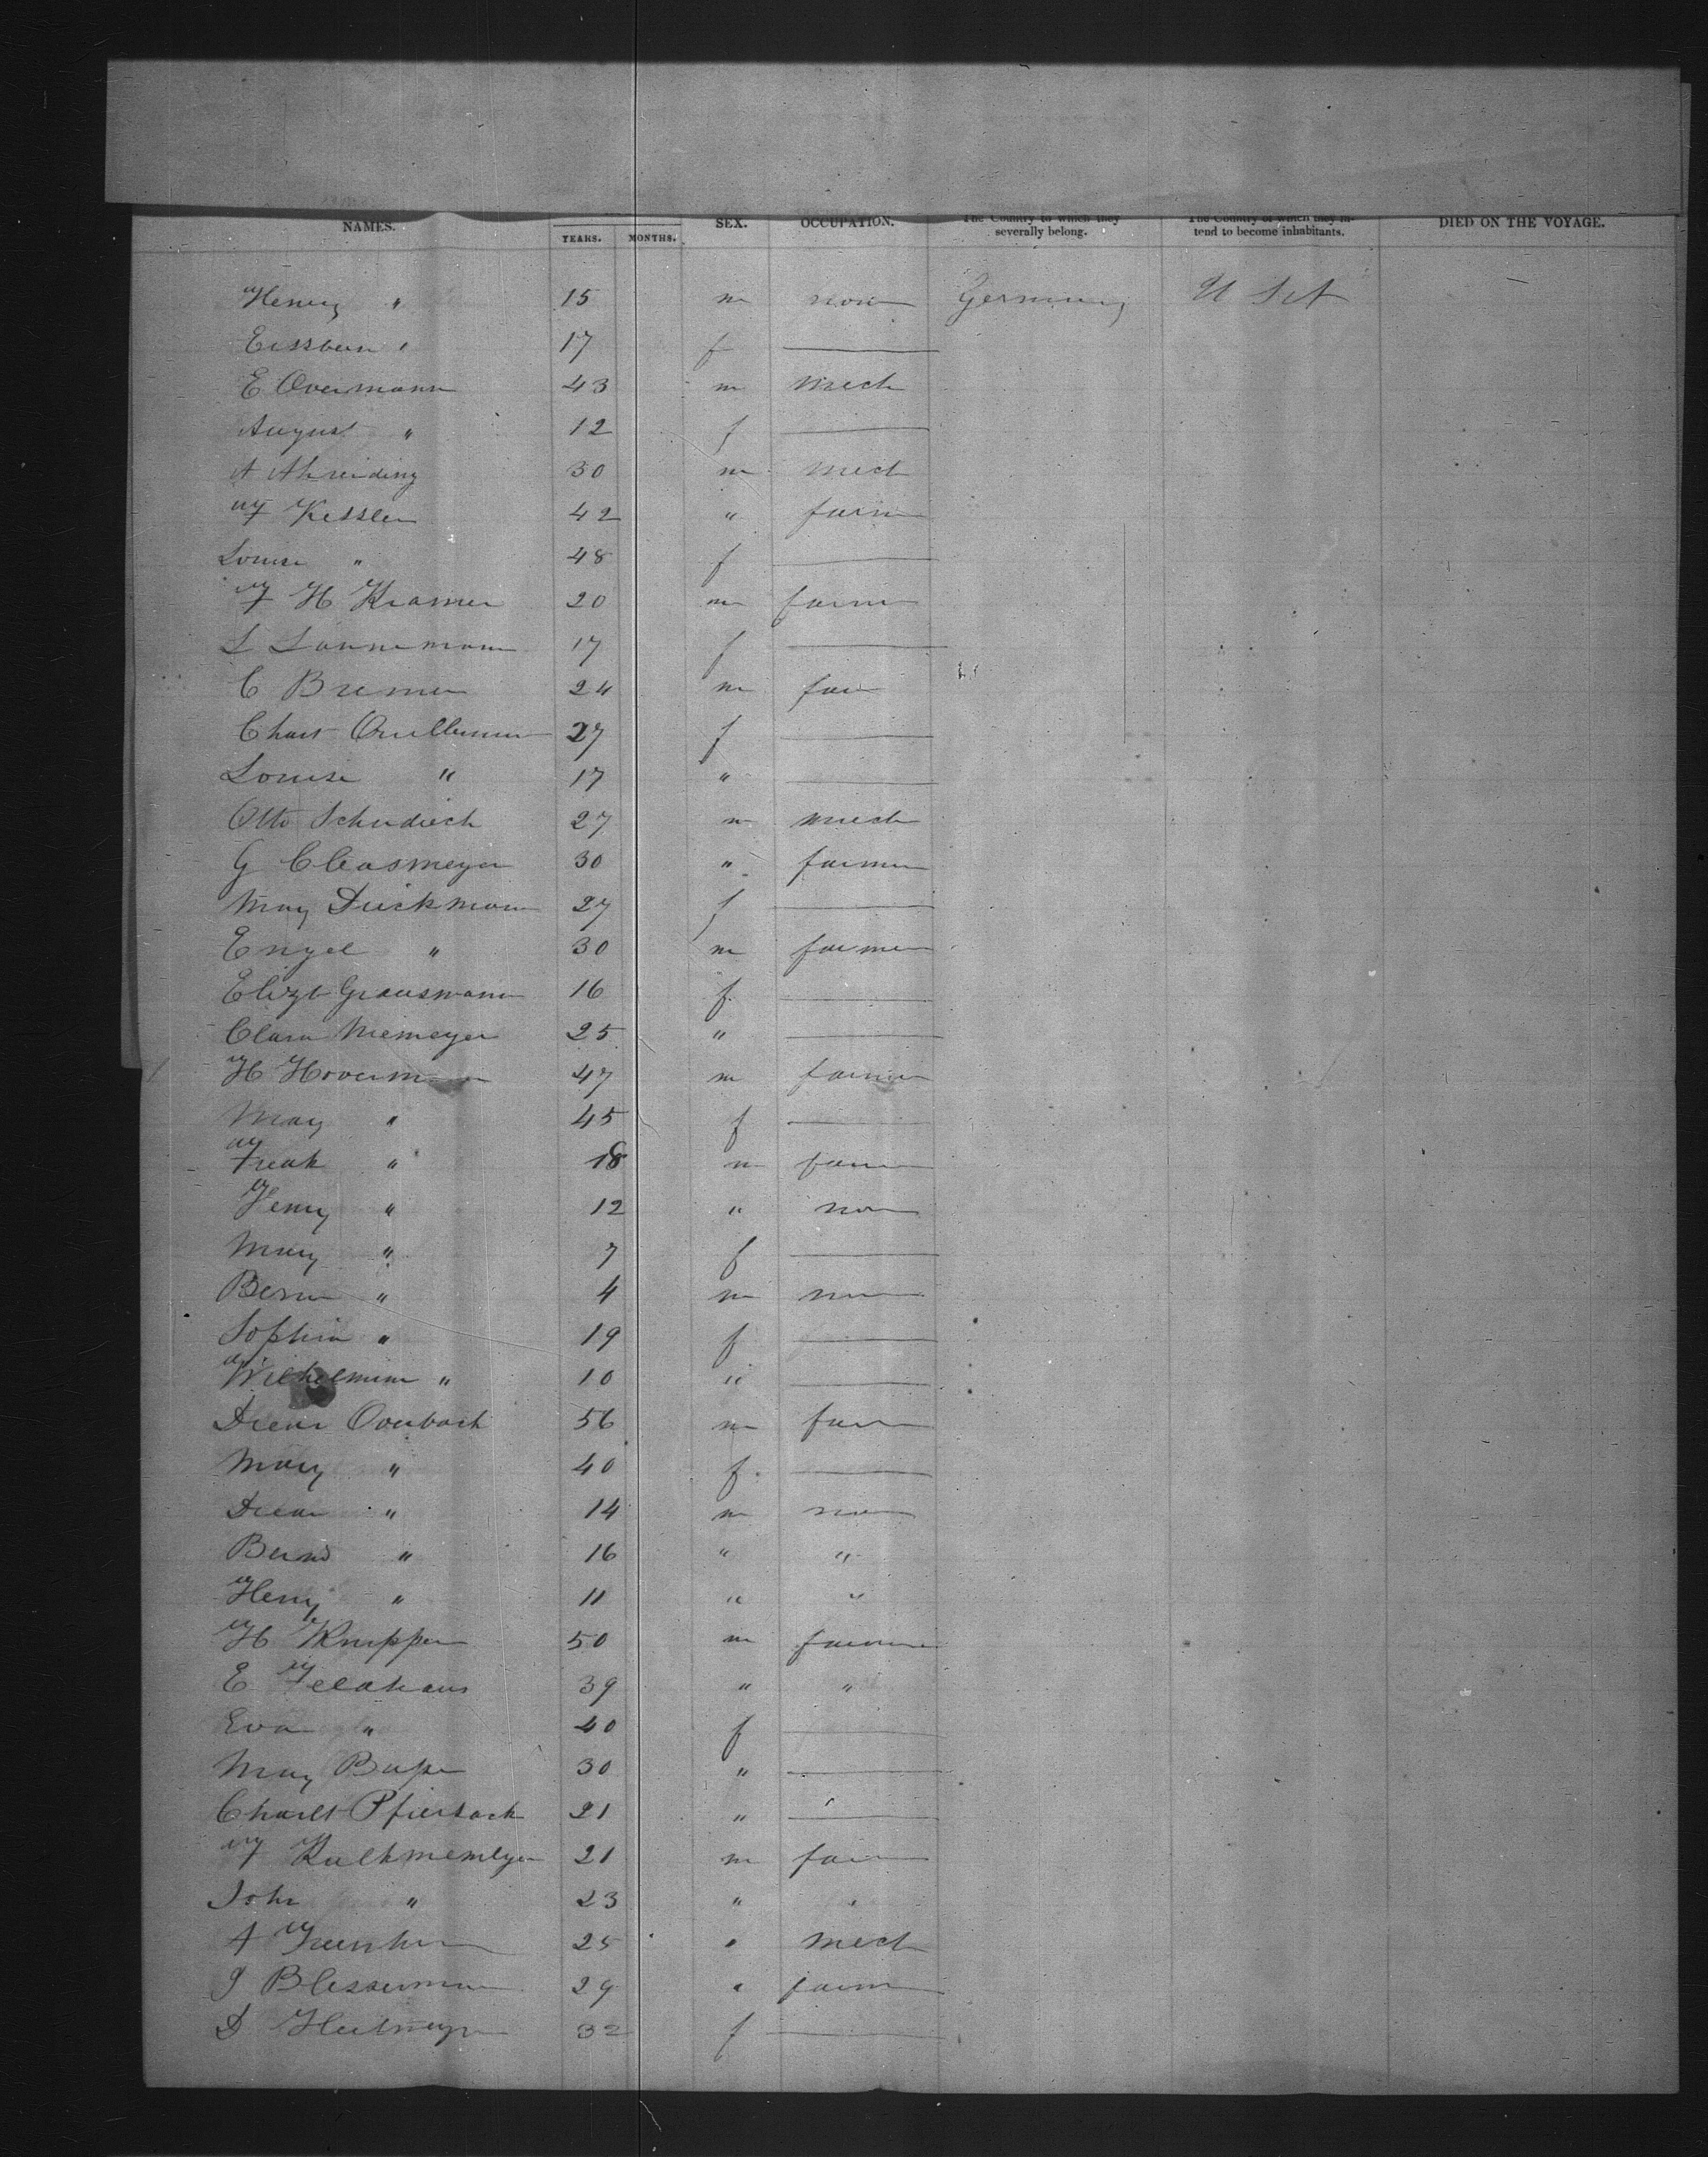 NAMES. YEARS. MONTHS. SEX. OCCUPATION. The Country to which they severally belong. The Country of which they in-tend to become inhabitants. DIED ON THE VOYAGE.
Henry " 15 m non Germany U St
17 f
E Overmann 43 m mech
August " 12 f
A 30 m mech
F Kessler 42 " farm
Louise " 48 f
F H Kramer 20 m farm
L 17 f
C Bremer 24 m far
27 f
Louise " 17 "
Otto Schudieck 27 m mech
G Cleasmeyer 30 " farmer
Mary Dieckmann 27 f
Engel " 30 m farmer
Elizt Grausmann 16 f
Clara Niemeyer 25 "
H Hovermann 47 m farmer
Mary " 45 f
" 18 m farm
Henry " 12 " non
Mary " 7 f
Bern " 4 m non
Sophia " 19 f
Wilhelmine " 10 "
Overbeck 56 m farm
Mary " 40 f
" 14 m non
Bernd " 16 " "
Henry " 11 " "
H Knipper 50 m farmer
E Feldhaus 39 " "
Eva " 40 f
Mary 30 "
Charlt Pfiersack 21 "
F 21 m far
John " 23 " "
A 25 " mech
Blesserman 29 " farm
D 32 f